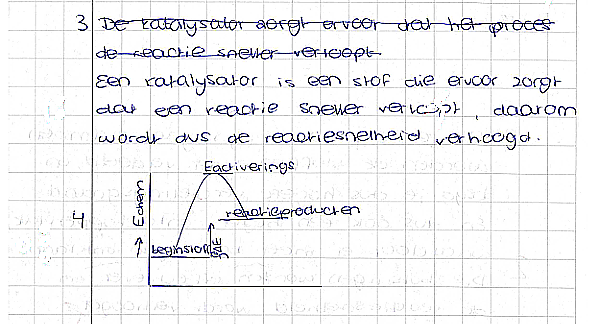 3 De katalysator zorgt ervoor dat het proces
de reactie sneller verloopt
Een katalysator is een stof die ervoor zorgt
dat een reactie sneller verloopt, daarom
wordt dus de reactiesnelheid verhoogd.
Eactiverings
reactieproducten
4
→ Echem
beginstof